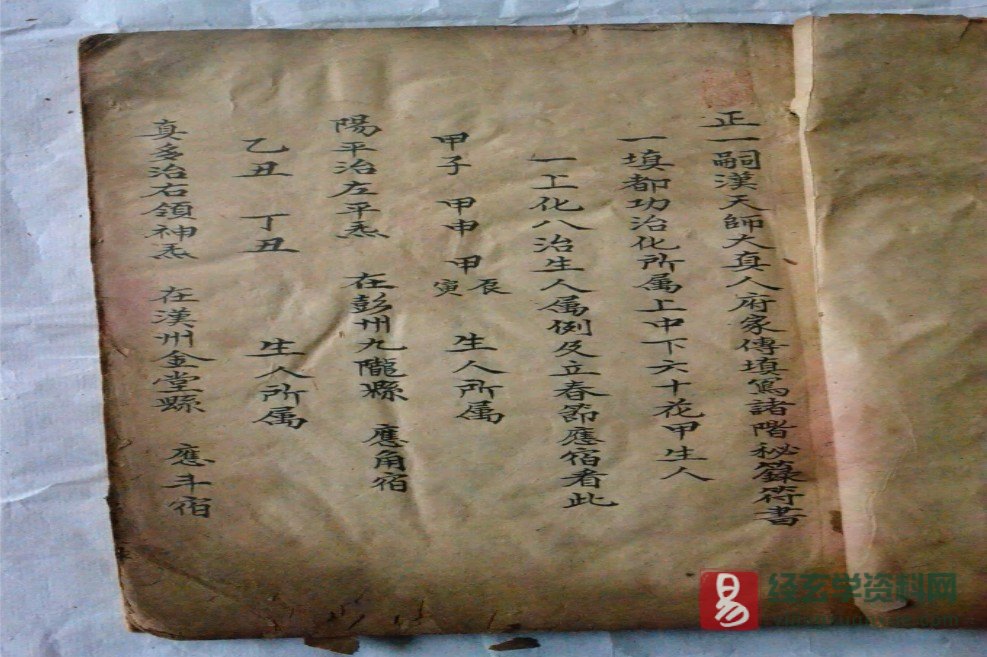 正一嗣漢天師大真人府家傳填寫諸階秘籙符書
一填都功治化所属上中下六十花甲生人
一上化八治生人属例及立春節應宿者此
甲子 甲申 甲寅 辰 生人所属
陽平治左平炁 在彭州九隴縣 應角宿
乙丑 丁丑 生人所属
真多治右領神炁 在漢州金堂縣 應斗宿
易
经玄学资料网